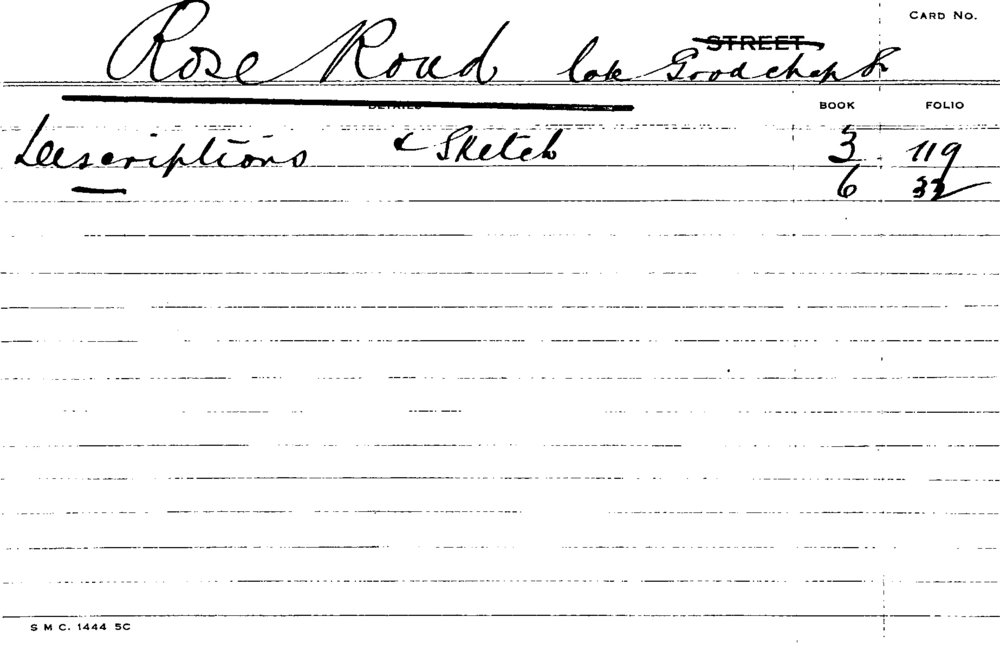 CARD No.
STREET
Rose Road late Goodchap St
DETAILS BOOK FOLIO
Descriptions & Sketch 3 119
6 32
S M C. 1444 5C